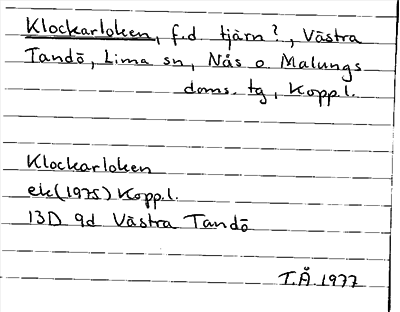 Klockarloken, f.d. tjärn?, Västra
Tandö, Lima sn, Nås o. Malungs
doms. tg, Kopp.l.
Klockarloken
ek(1975) Kopp.l.
13D 9d Västra Tandö
T.Å.1977